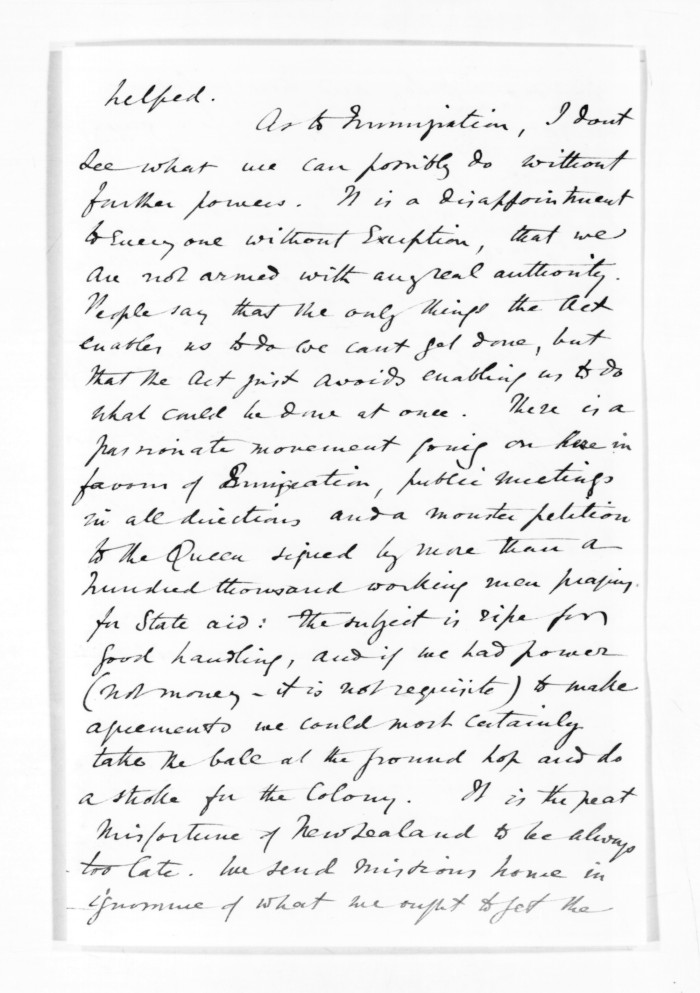 helped.
As to Immigration, I dont
see what we can possibly do without
further powers. It is a disappointment
to every one without Exception, that we
are not armed with any real authority.
People say that the only things the Act
enables us to do we cant get done, but
that the Act just avoids enabling us to do
what could be done at once. There is a
passionate movement going on here in
favour of Emigration, public meetings
in all directions and a monster petition
to the Queen signed by more than a
hundred thousand working men praying
for State aid: the subject is ripe for
good handling, and if we had power
(not money - it is not requisite) to make
agreements we could most certainly
take the ball at the ground hop and do
a stroke for the Colony. It is the great
misfortune of New Zealand to be always
too late. We send missions home in
of what we ought to get the